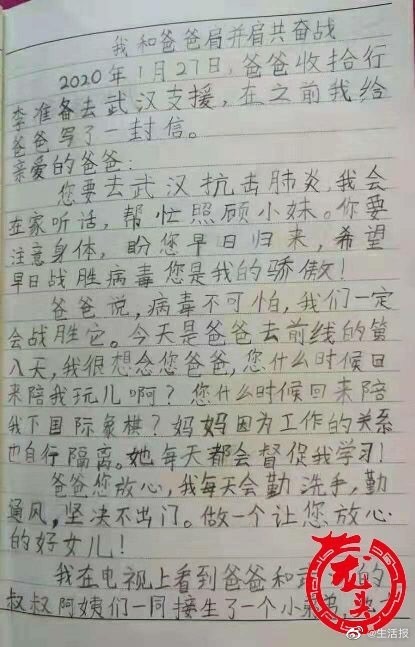 我和爸爸局并肩共奋战
2020年1月27日,爸爸收拾行
李准备去武汉支援,在之前我给
爸爸写了一封信。
亲爱的爸爸:
您要去武汉抗击肺炎,我会
在家听话,帮忙照顾小妹。你要
注意身体,盼您早日归来,希望
早日战胜病毒您是我的骄傲!
爸爸说,病毒不可怕,我们一定
会战胜它。今天是爸爸去前线的第
八天,我很想念您爸爸,您什么时候回
来陪我玩儿啊?您什么时候回来陪
我下国际象棋?妈妈因为工作的关系
也自行隔离。她每天都会督促我学习!
爸爸您放心,我每天会勤洗手,勤
通风,坚决不出门。做一个让您放心
的好女儿!
我在电视上看到爸爸和武的
叔叔阿姨们一同接生了一个小弟弟,
龙头
@生活报